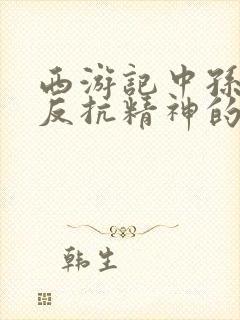 西游记中孙
反抗精神的
韩生